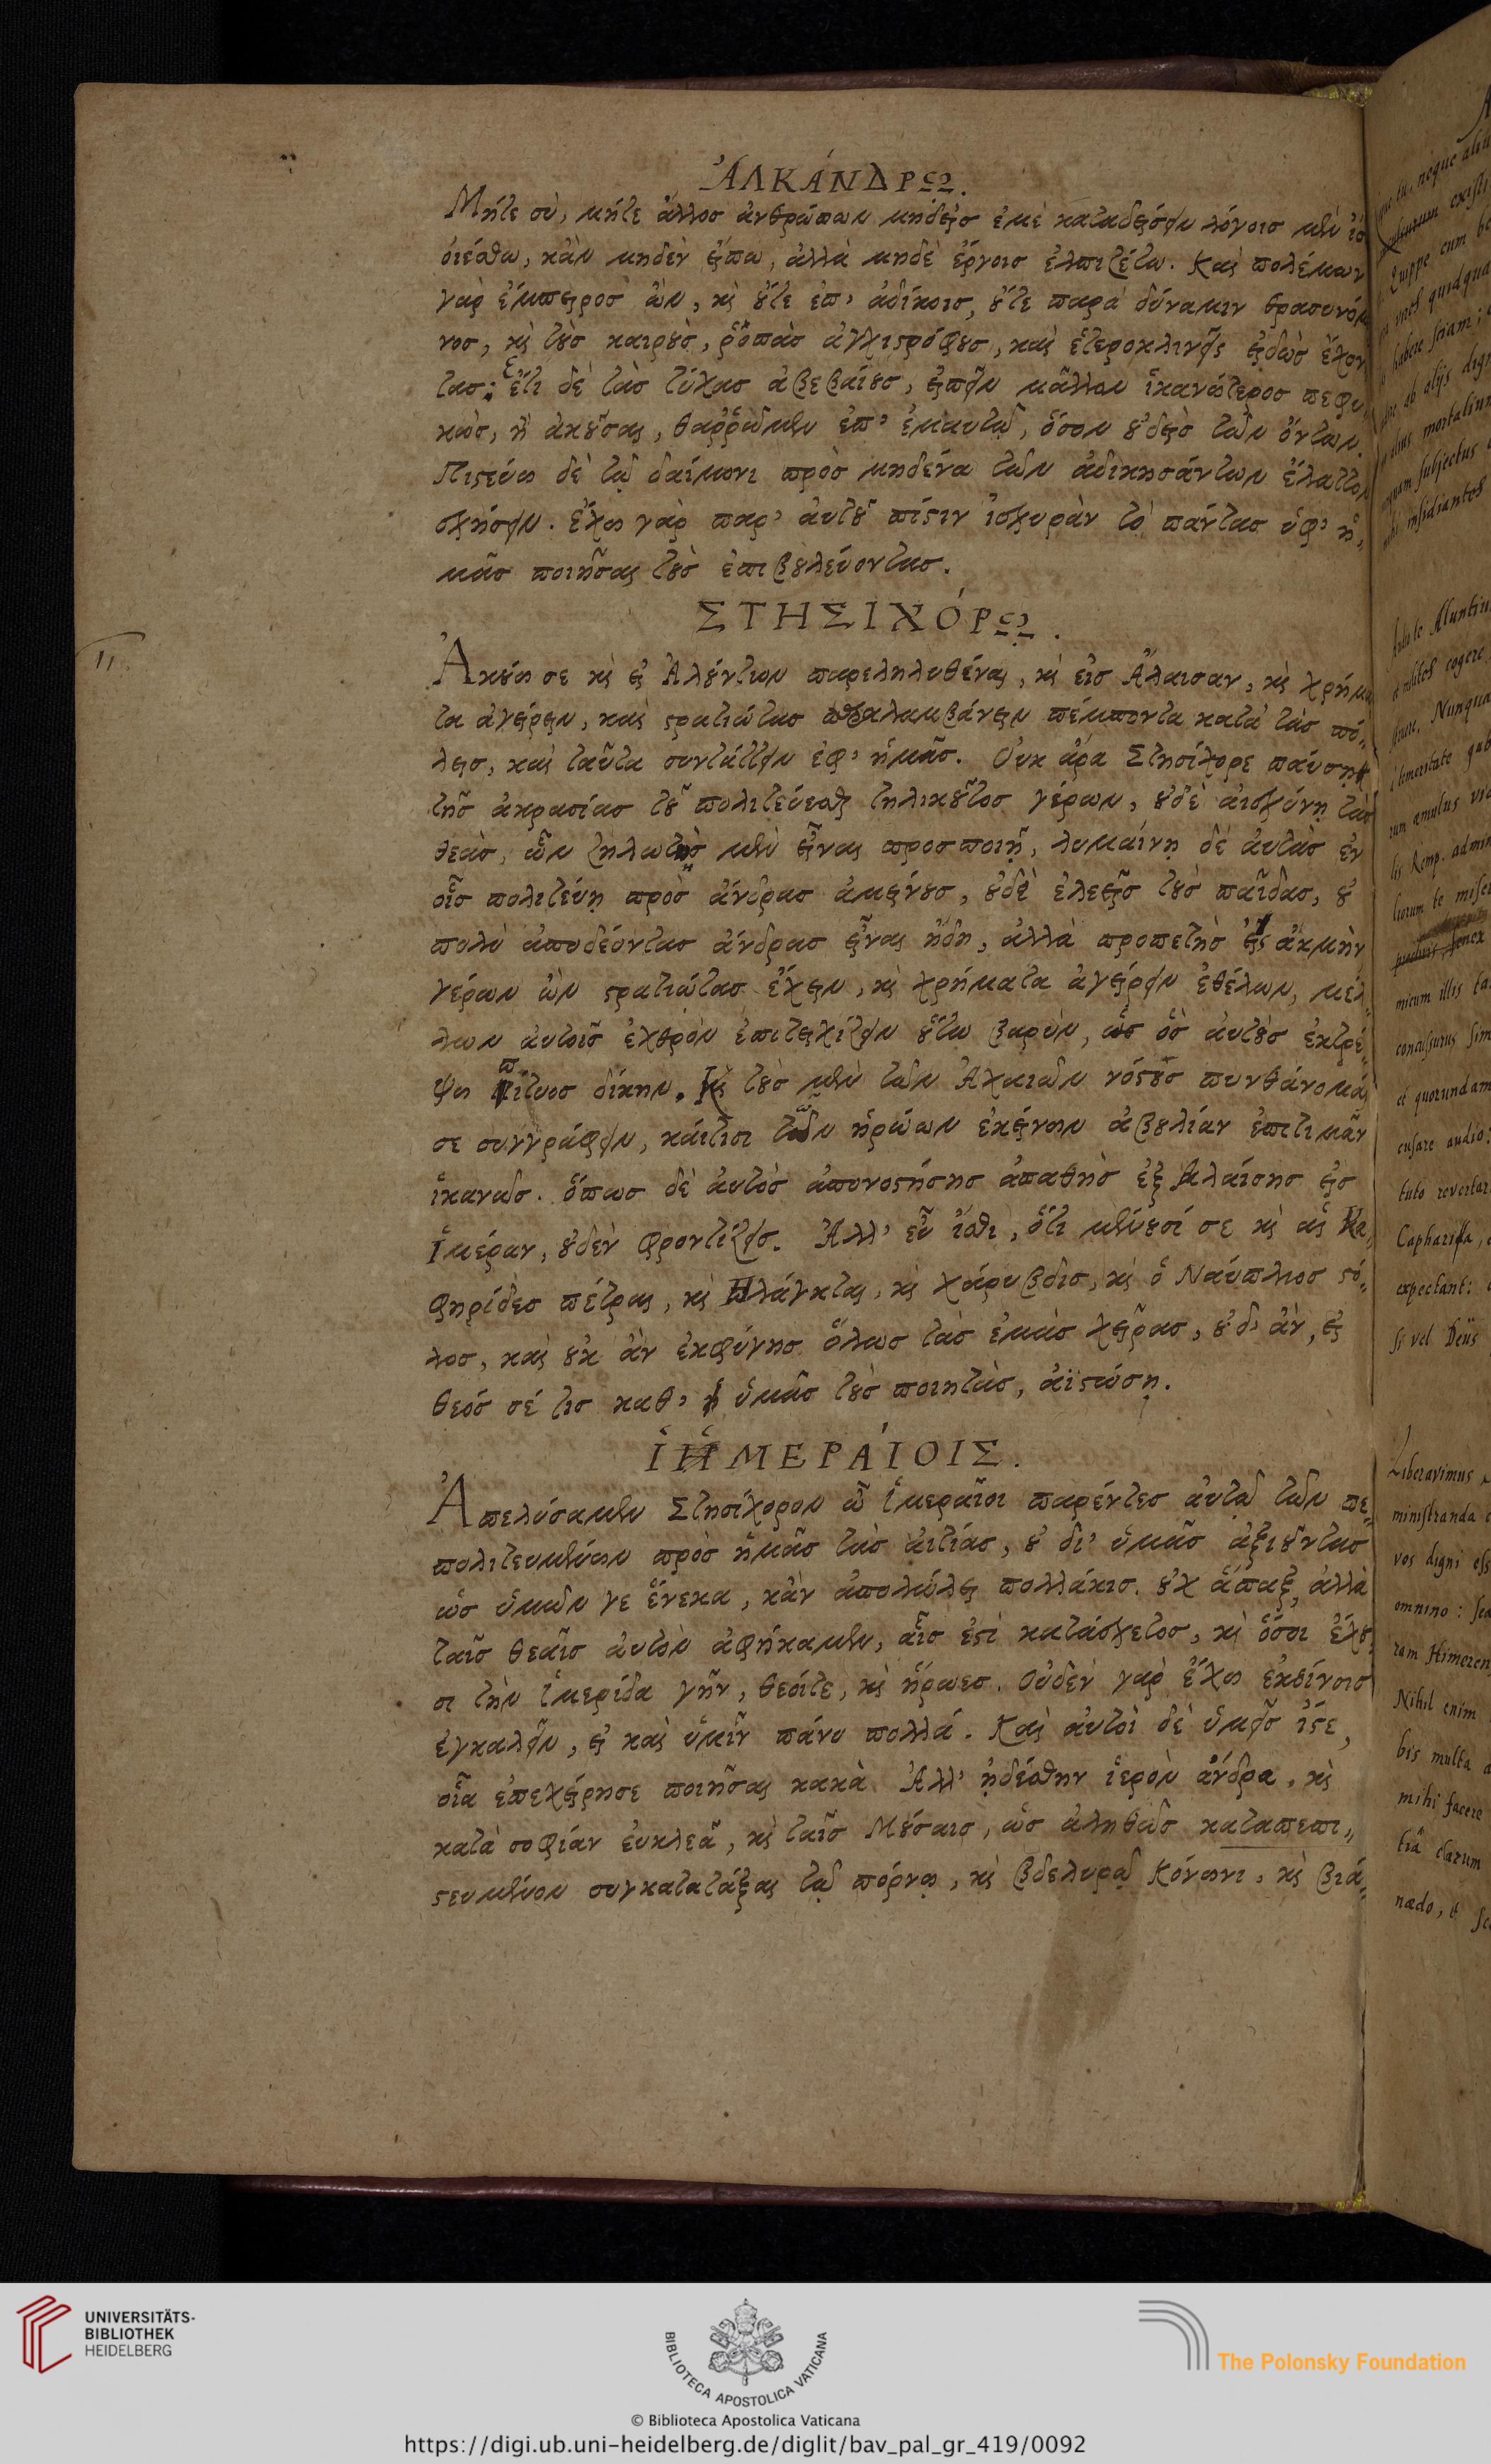 ἈΛΚΆΝΔΡῼ.
Μήτε σὺ, μήτε ἄλλος ἀνθρώπων μηδεὶς ἐμὲ καταδείσειν λόγοις μὲν
οἰέσθω, κἂν μηδὲν εἴπω, ἀλλὰ μηδὲ ἔργοις ἐλπιζέτω. Καὶ πολέμων
γὰρ ἔμπειρος ὢν, καὶ οὔτε ἐπ' ἀδίκοις, οὔτε παρὰ δύναμιν θρασυνόμε
νος, καὶ τοὺς καιροὺς, ῥοπὰς ἀγχιστρόφους, καὶ ἑτεροκλινεῖς εἰδὼς ἔχον
τας: ἔτι δὲ τὰς τύχας ἀβεβαίους, εἰπεῖν μᾶλλον ἱκανώτερος πεφυ
κὼς, ἢ ἀκοῦσαι, θαῤῥῶμεν ἐπ' ἐμαυτῷ, ὅσον οὐδεὶς τῶν ὄντων.
Πιστεύω δὲ τῷ δαίμονι πρὸς μηδένα τῶν ἀδικησάντων ἔλαττον
σχήσειν. ἔχω γὰρ παρ' αὐτοῦ πίστιν ἰσχυρὰν τὸ πάντας ὑφ' ἡ-
μᾶς ποιῆσαι τοὺς ἐπιβουλεύοντας.
ΣΤΗΣΙΧΌΡῼ.
11
Ἀκούω σε καὶ εἰς Ἀλούντιον παρεληλυθέναι, καὶ εἰς Ἄλαισαν, καὶ χρήμα
τα ἀγείρειν, καὶ στρατιώτας παραλαμβάνειν πέμποντα κατὰ τὰς πό-
λεις, καὶ ταῦτα συντάττειν ἐφ' ἡμᾶς. Οὐκ ἄρα Στησίχορε παύσῃ
τῆς ἀκρασίας τοῦ πολιτεύεσθαι τηλικοῦτος γέρων, οὐδὲ αἰσχύνῃ τὰς
θεὰς, ὧν ζηλωτὴς μὲν εἶναι προσποιῇ, λυμαίνῃ δὲ αὐτὰς ἐν
οἷς πολιτεύῃ πρὸς ἄνδρας ἀμείνους, οὐδὲ ἐλεεῖς τοὺς παῖδας, οὐ
πολὺ ἀποδέοντας ἄνδρας εἶναι ἤδη, ἀλλὰ προπετὴς εἰς ἀκμὴν
γέρων ὢν στρατιώτας ἔχειν, καὶ χρήματα ἀγείρειν ἐθέλων, μέλ-
λων αὐτοῖς ἐχθρὸν ἐπιτειχίζειν οὕτω βαρὺν, ὡς ὃς αὐτοὺς ἐκτρί-
ψει πίτυος δίκην. Καὶ τοὺς μὲν τῶν Ἀχαιῶν νόστους πυνθάνομαί
σε συγγράφειν, καίτισι τῶν ἡρώων ἐκείνων ἀβουλίαν ἐπιτιμᾶν
ἱκανῶς. ὅπως δὲ αὐτὸς ἀπονοστήσῃς ἀπαθὴς ἐξ Ἀλαίσης εἰς
Ἱμέραν, οὐδὲν φροντίζεις. Ἀλλ' εὖ ἴσθι, ὅτι μένουσί σε καὶ αἱ Κα-
φηρίδες πέτραι, καὶ Πλάγκται, καὶ χάρυβδις, καὶ ὁ Ναύπλιος στό-
λος, καὶ οὐκ ἂν ἐκφύγῃς ὅλως τὰς ἐμὰς χεῖρας, οὐδ' ἂν, εἰ
θεός σέ τις καθ' ὑμᾶς τοὺς ποιητὰς, ἀϊστώσῃ.
ἹΜΕΡΑΊΟΙΣ.
Ἀπελύσαμεν Στησίχορον ὦ Ἱμεραῖοι παρέντες αὐτῷ τῶν πε-
πολιτευμένων πρὸς ἡμᾶς τὰς αἰτίας, οὐ δι' ὑμᾶς ἀξιοῦντας
ὡς ὑμῶν γε ἕνεκα, κἂν ἀπολώλει πολλάκις. οὐχ ἅπαξ, ἀλλὰ
ταῖς θεαῖς αὐτὸν ἀφήκαμεν, αἷς ἐστὶ κατάσχετος, καὶ ὅσοι ἔχου
σι τὴν ἱμερίδα γῆν, θεοίτε, καὶ ἥρωες. Οὐδὲν γὰρ ἔχω ἐκείνοις
ἐγκαλεῖν, εἰ καὶ ὑμῖν πάνυ πολλά. Καὶ αὐτοὶ δὲ ὑμεῖς ἴστε,
οἷα ἐπεχείρησε ποιῆσαι κακὰ. Ἀλλ' ᾐδέσθην ἱερὸν ἄνδρα, καὶ
κατὰ σοφίαν εὐκλεᾶ, καὶ ταῖς Μούσαις, ὡς ἀληθῶς καταπεπι-
στευμένον συγκατατάξαι τῷ πόρνῳ, καὶ βδελυρῷ Κόνωνι, καὶ βιά-
neque
existi
Quippe cum
habere sciam;
ab alijs
mortalium
subjectus
insidiantes
Aluntium
cogere
Nunqua
æmulus
Remp. admin
te
senex
micum illis
concussurus
et quorundam
cusare audio:
tuto revertar
Capharisa,
expectant:
si vel Deus
Liberavimus
ministranda
vos digni
omnino:
ram
Nihil enim
bis multa
mihi facere
tiâ clarum
nædo, et
UNIVERSITÄTS-
BIBLIOTHEK
HEIDELBERG
BIBLIOTECA APOSTOLICA VATICANA
The Polonsky Foundation
© Biblioteca Apostolica Vaticana
https://digi.ub.uni-heidelberg.de/diglit/bav_pal_gr_419/0092